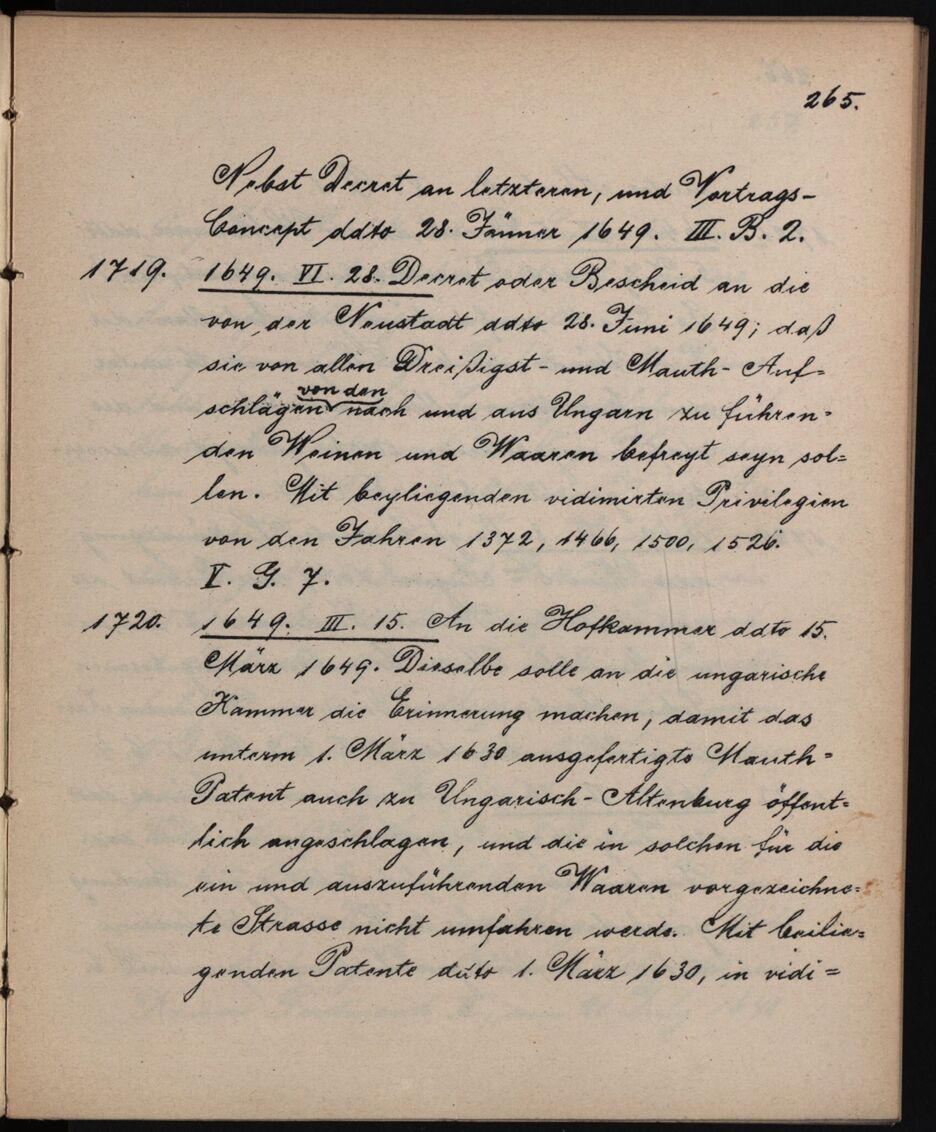 265.
Nebst Decret an letzteren, und Vortrags-
Concept ddto 28. Jänner 1649. III. B. 2.
1719. 1649. VI. 28. Decret oder Bescheid an die
von der Neustadt ddto 28. Juni 1649; daß
sie von allen Dreißigst- und Mauth-Auf=
von den
schlägen nach und aus Ungarn zu führen=
den Weinen und Waaren befreyt seyn sol=
len. Mit beyliegenden vidimirten Privilegien
von den Jahren 1372, 1466, 1500, 1526.
V. G. 7.
1720. 1649. III. 15. An die Hofkammer ddto 15.
März 1649. Dieselbe solle an die ungarische
Kammer die Erinnerung machen, damit das
unterm 1. März 1630 ausgefertigte Mauth=
Patent auch zu Ungarisch-Altenburg öffent=
lich angeschlagen, und die in solchen für die
ein und auszuführenden Waaren vorgezeichne=
te Strasse nicht umfahren werde. Mit beilie=
genden Patente duto 1. März 1630, in vidi=